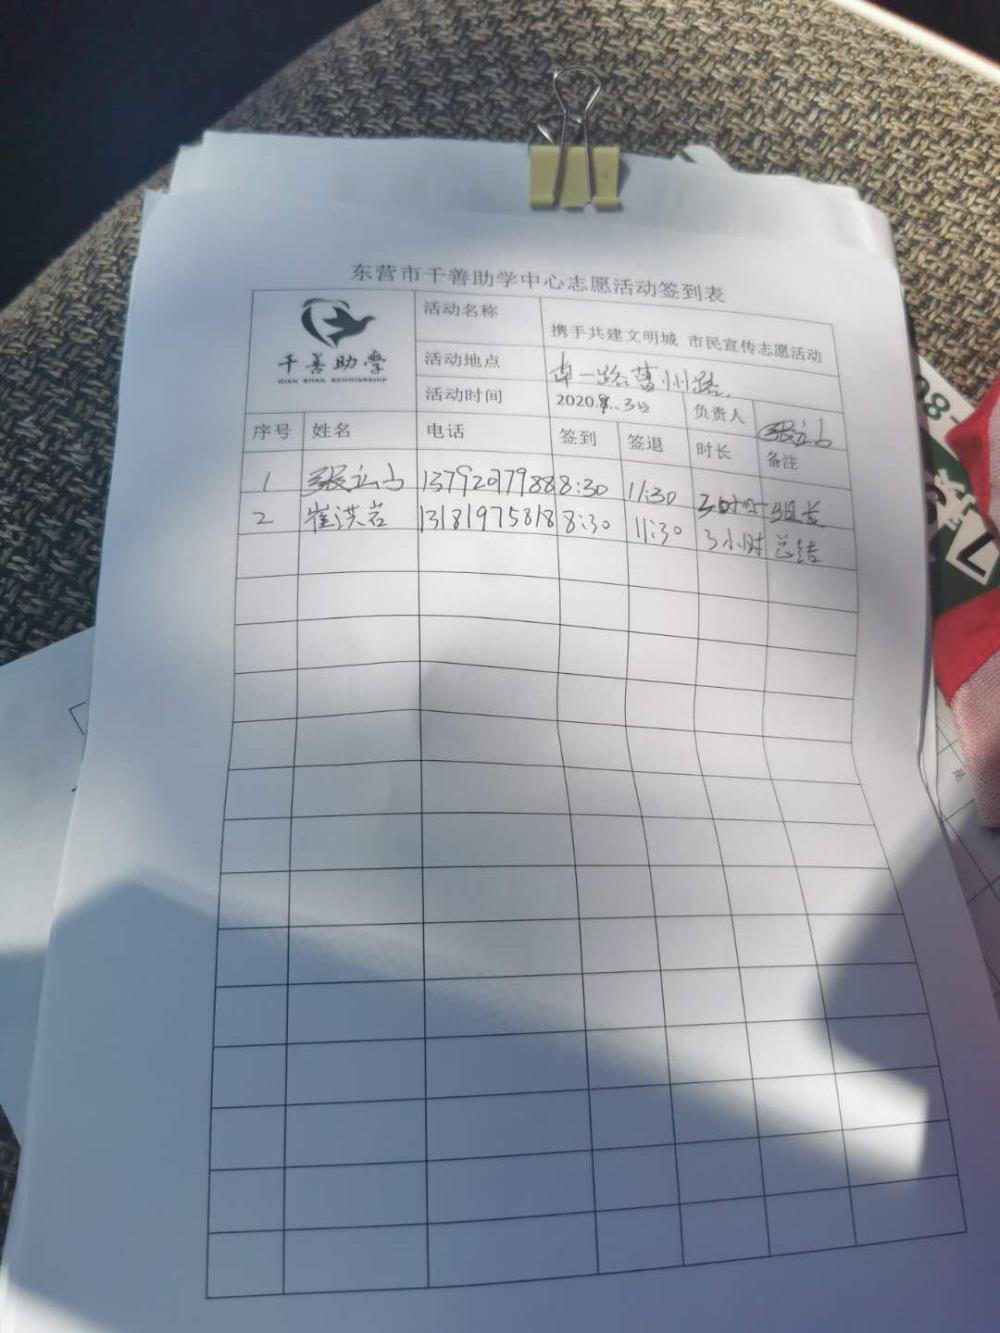 东营市千善助学中心志愿活动签到表
千善助学
QIAN SHAN SCHOLARSHIP
活动名称 携手共建文明城 市民宣传志愿活动
活动地点 南一路曹州路
活动时间 2020.8.3日 负责人 张立山
序号 姓名 电话 签到 签退 时长 备注
1 张立山 13792077988 8:30 11:30 3小时 组长
2 崔洪岩 13181975818 8:30 11:30 3小时 总结